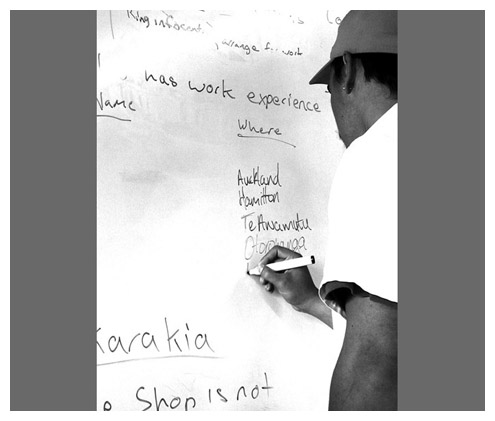 King is
arrange work
has work experience
Name
Where
Auckland
Hamilton
TeAwamutu
Otorohanga
karakia
Shop is not